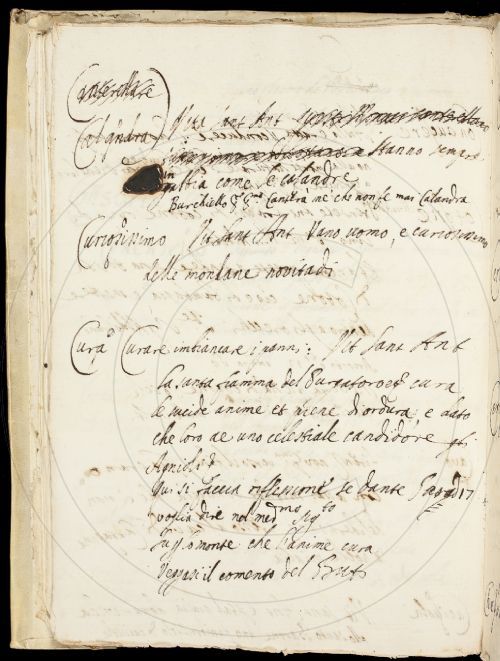 Calandra Vita Sant Ant
Stanno serrar
in
gabbia come le calandre
Burchiello canterà me che non fe mai Calandra
Curiosissimo Vit Sant Ant Vano uomo, e curiosissimo
delle mondane novitadi
Cura Curare imbiancare i panni: Vit Sant Ant
la santa fiamma del Purgatoro cura
le sucide anime et piene di ordura, e dato
che loro ae uno celestiale candidore
Agnioli
Qui si faccia riflessione se Dante
voglia dire nel med.mo sig.to
su p lo monte che l'anime cura
Veggasi il comento del But